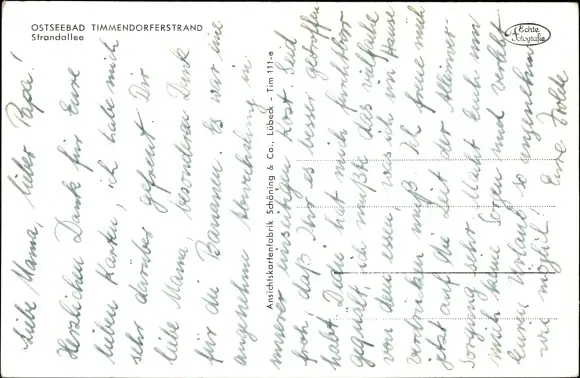 OSTSEEBAD TIMMENDORFERSTRAND
Strandallee
Echte
Fotografie
Ansichtskartenfabrik Schöning & Co., Lübeck - Tim 111-e
Liebe Mama, lieber Papa!
Herzlichen Dank für Eure
lieben Karten, ich habe mich
sehr darüber gefreut. Dir
liebe Mama, besonderen Dank
für die Bananen. Es war eine
angenehme Abwechslung in
unserer eintönigen Kost. Seid
froh, daß Ihr es besser getroffen
habt. Dann hat mich furchtbar
gequält, ich müßte das vielfache
von dem essen, was ich im Hause
verdrücken muß. Ich freue mich
jetzt auf die Zeit der Alleinver-
sorgung sehr. Macht Euch um
mich keine Sorgen und verlebt
Euren Urlaub so angenehm
wie möglich! Eure